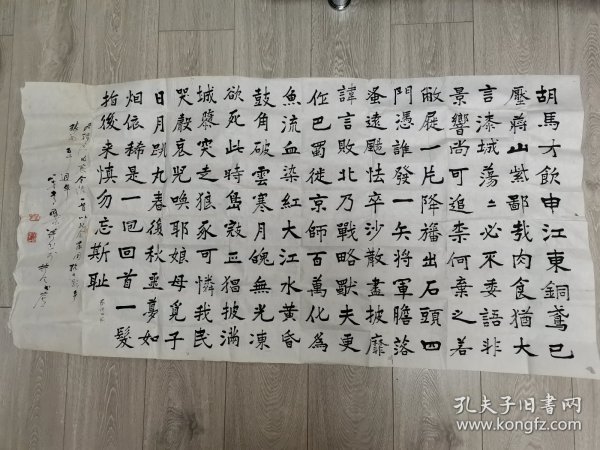 胡馬才飲申江東銅鳶已
壓蔣山紫鄙哉肉食猶大
言漆城蕩〻必不委語非
景響尚可追柰何棄之若
敝屣一片降旛出石頭四
門憑誰發一矢將軍膽落
蚤遠颺怯卒沙散盡披靡
諱言敗北乃戰略獸夫更
作巴蜀徙京師百萬化為
魚流血染紅大江水黃昏
鼓角破雲寒月魄無光凍
欲死此時正猖披滿
城突之狼豕可憐我民
哭聲哀兒喚耶娘母覓子
日月跳丸春復秋噩夢如
烟依稀是一回回首一髮
指後來慎勿忘斯恥
孔夫子旧书网
www.kongfz.com